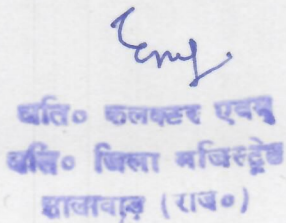 अति० कलक्टर एवम्
अति० जिला मजिस्ट्रेट
झालावाड़ (राज०)